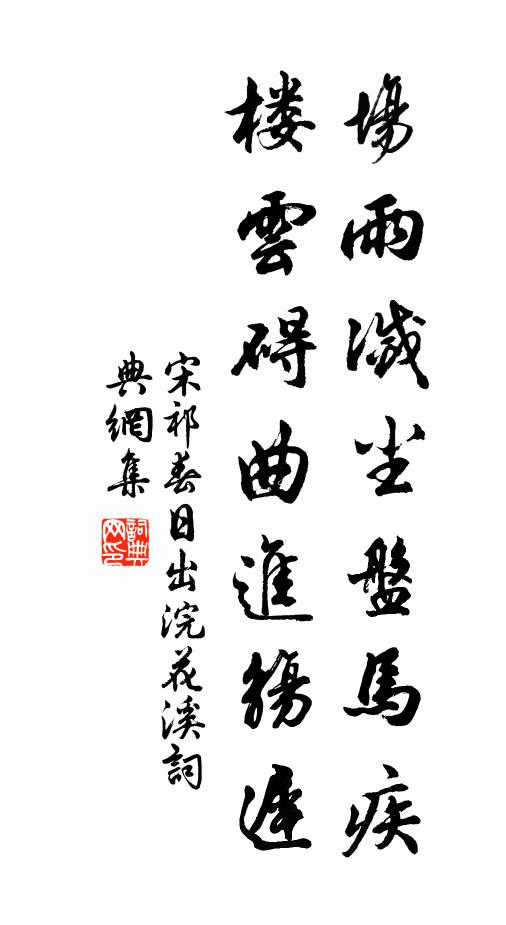 場雨滅尘盤馬疾
楼雲碍曲進觴遲
宋祁春日出浣花溪詞
典網集
詞典网印